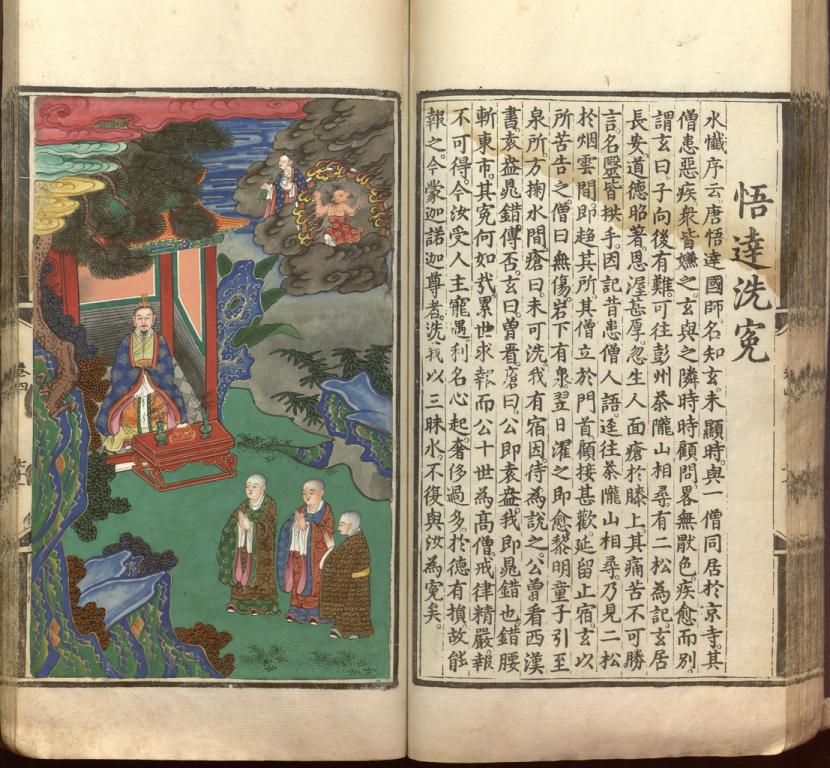 悟達洗冤
水懺序云唐悟達國師名知玄未顯時與一僧同居於京寺其
僧患惡疾衆皆嫌之玄與之隣時時顧問畧無厭色疾愈而別
謂玄曰子向後有難可往彭州茶隴山相尋有二松為記玄居
長安道德昭著恩渥甚厚忽生人面瘡於膝上其痛苦不可勝
言名醫皆拱手因記昔患僧人語逕往茶隴山相尋乃見二松
於烟雲間即趨其所其僧立於門首顧接甚歡延留止宿玄以
所苦告之僧曰無傷岩下有泉翌日濯之即愈黎明童子引至
泉所方掬水間瘡曰未可洗我有宿因待為說之公曾看西漢
書袁盎鼂錯傳否玄曰曾看瘡曰公即袁盎我即鼂錯也錯腰
斬東市其冤何如哉累世求報而公十世為高僧戒律精嚴報
不可得今汝受人主寵遇利名心起奢侈過多於德有損故能
報之今蒙迦諾迦尊者洗我以三昧水不復與汝為冤矣
卷四